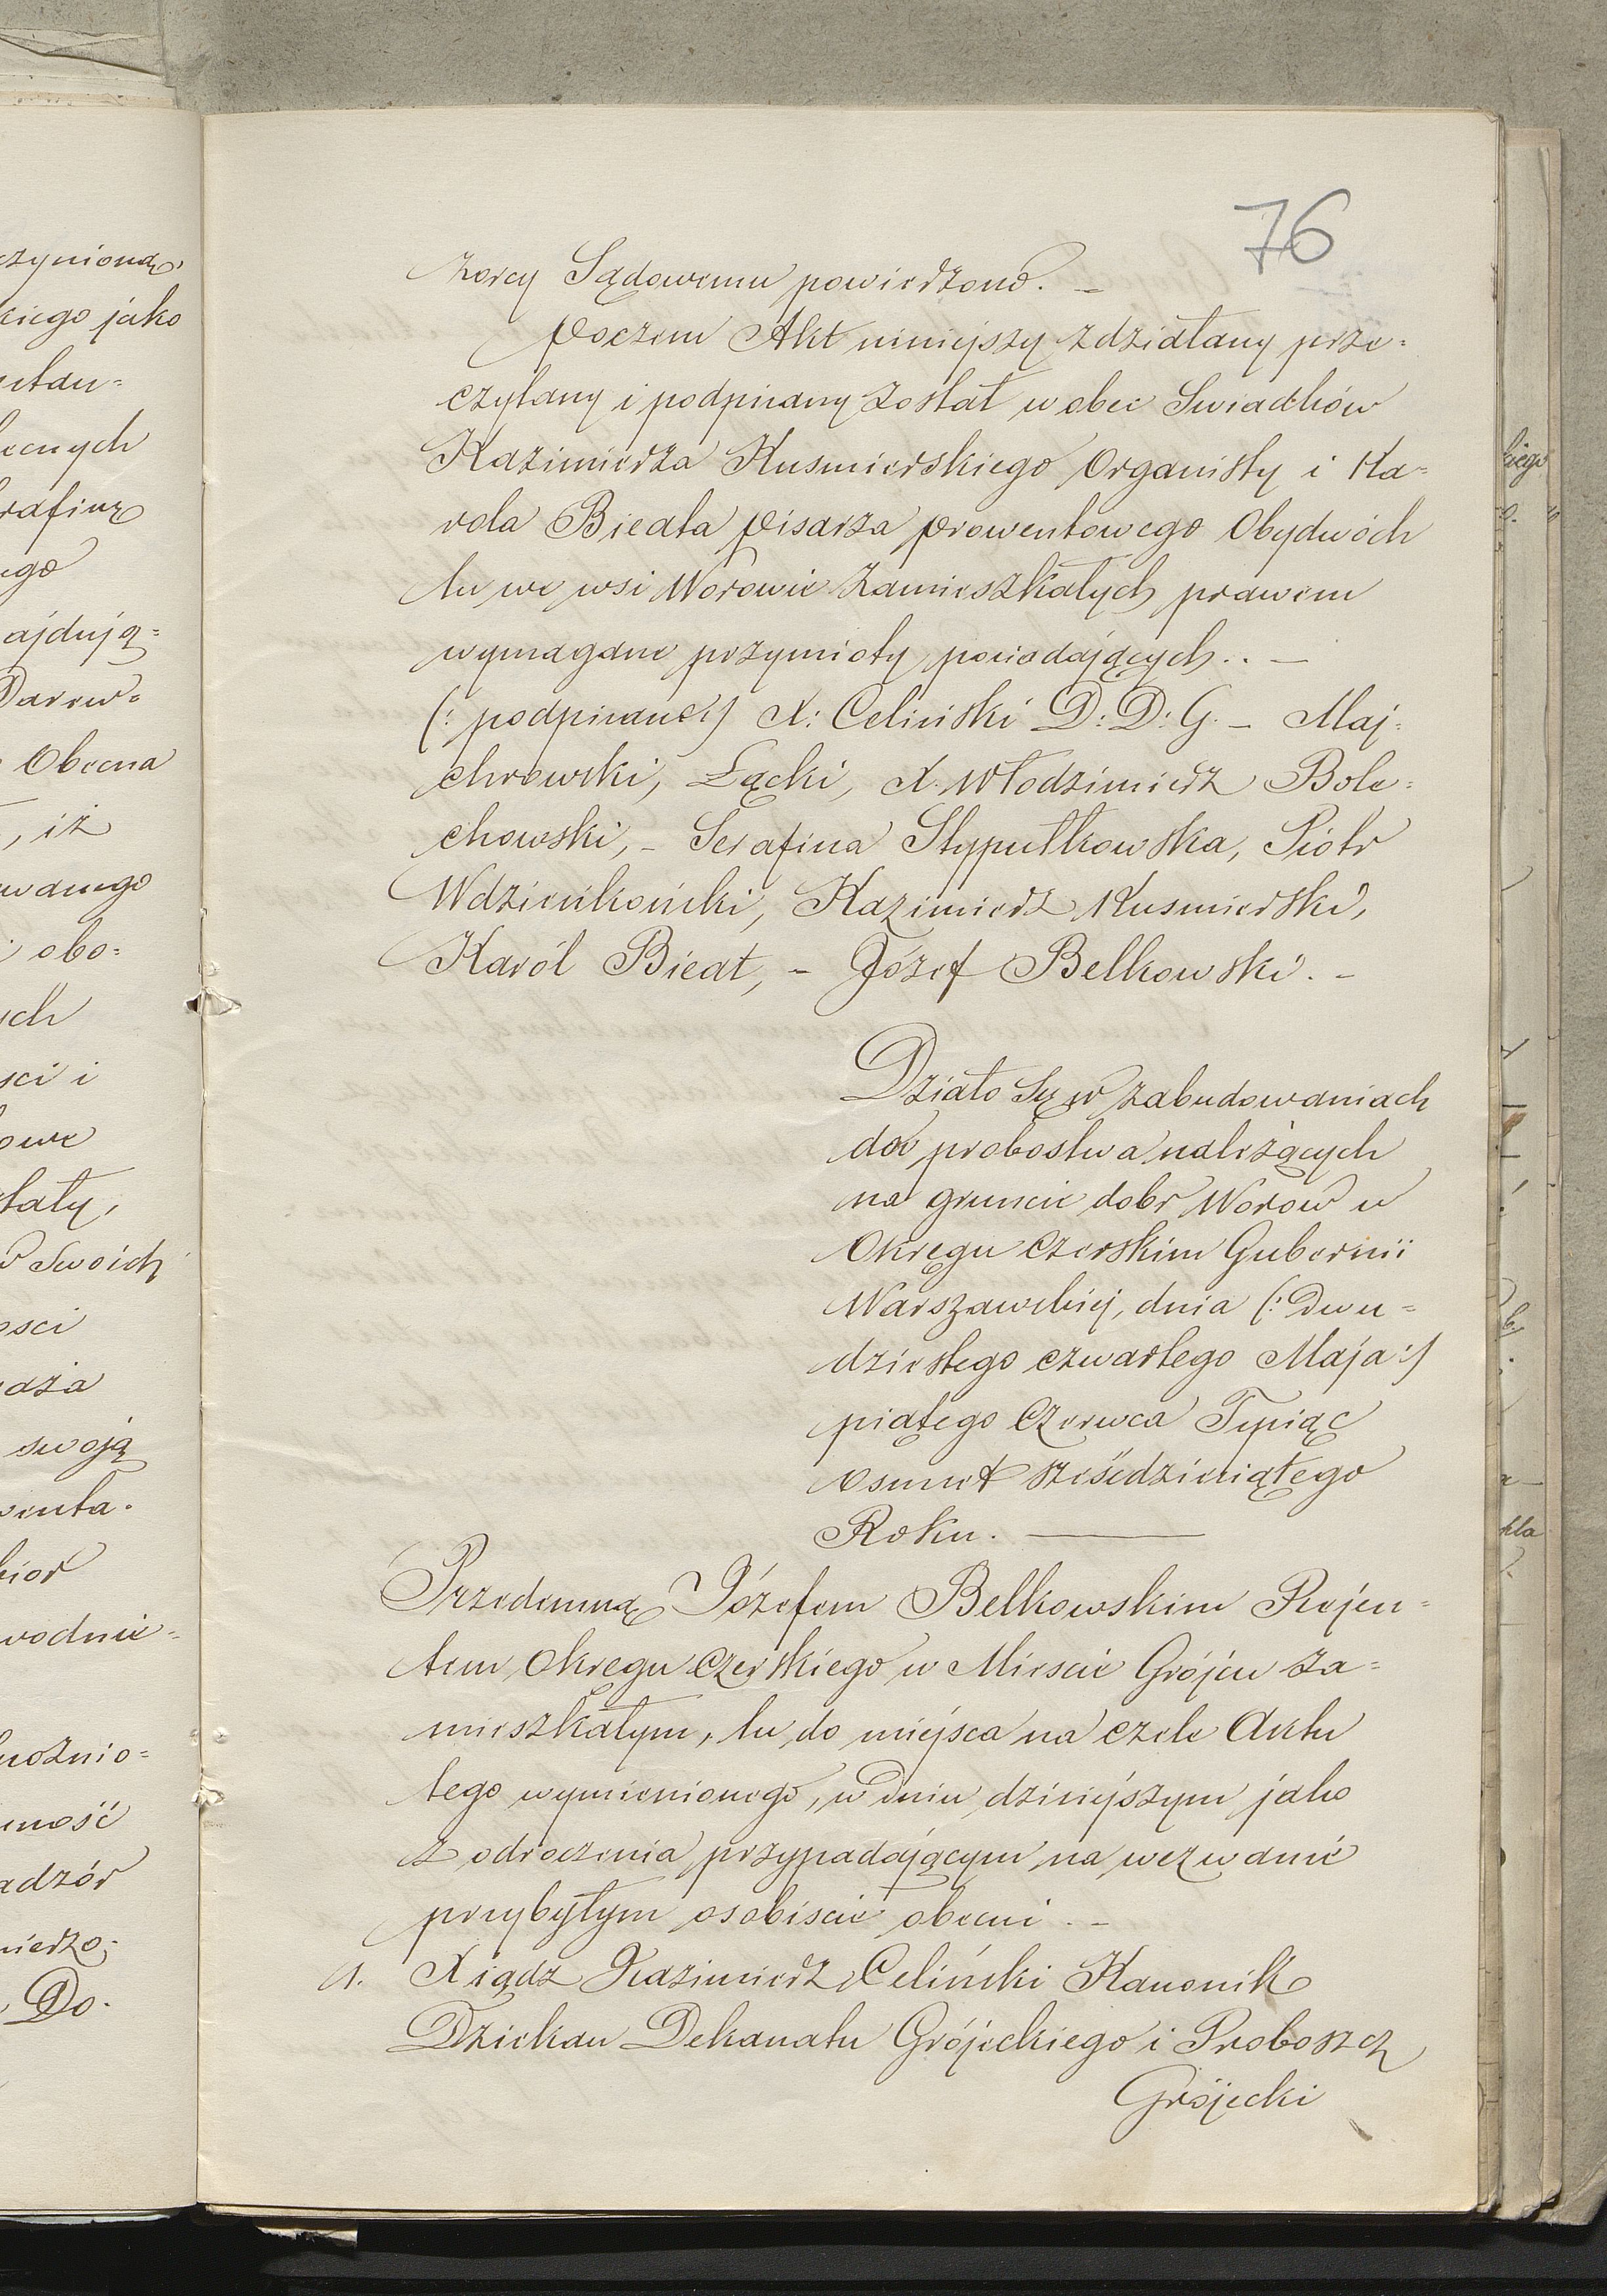 76
zorcy Sądowemu powierzono. –
Poczem Akt niniejszy zdziałany prze=
czytany i podpisany został w obec Swiadków
Kazimierza Kusmierskiego Organisty i Ka=
rola Bieata Pisarza Prowentowego Obydwóch
tu we wsi Worowie zamieszkałych prawem
wymagane przymioty posiadających.. –
(: podpisane:) X: Celiński D: D: G. – Maj=
chrowski, Łącki, X. Włodzimierz Bole=
chowski, – Serafina Stypułkowska, Piotr
Wdzieńkoński, Kazimierz Kusmierski,
Karól Bieat, – Józef Bełkowski. –
Działo Się w zabudowaniach
do probostwa należących
na gruncie dobr Worow w
Okręgu Czerskim Gubernii
Warszawskiej, dnia (: Dwu=
dziestego czwartego Maja :)
piątego Czerwca Tysiąc
osmset sześćdziesiątego
Roku.
Przedemną Józefem Bełkowskim Rejen=
tem Okręgu Czerskiego w Miescie Grójcu za=
mieszkałym, tu do miejsca na czele Aktu
tego wymienionego, w dniu dzisiejszym jako
z odroczenia przypadającym na wezwanie
przybyłym osobiscie obecni. –
1. Xiądz Kazimierz Celiński Kanonik
Dziekan Dekanatu Grójeckiego i Proboszcz
Grójecki
czyniona,
kiego jako
ecnych
rafinę
ego
ajdują=
Darow=
Obecna
, iż
wanego
i obo=
ych
sci i
owe
tały,
Swoich
osci
adza
swoją
enta.
biór
wodnie=
możnio=
mość
adzór
Do.
kiego